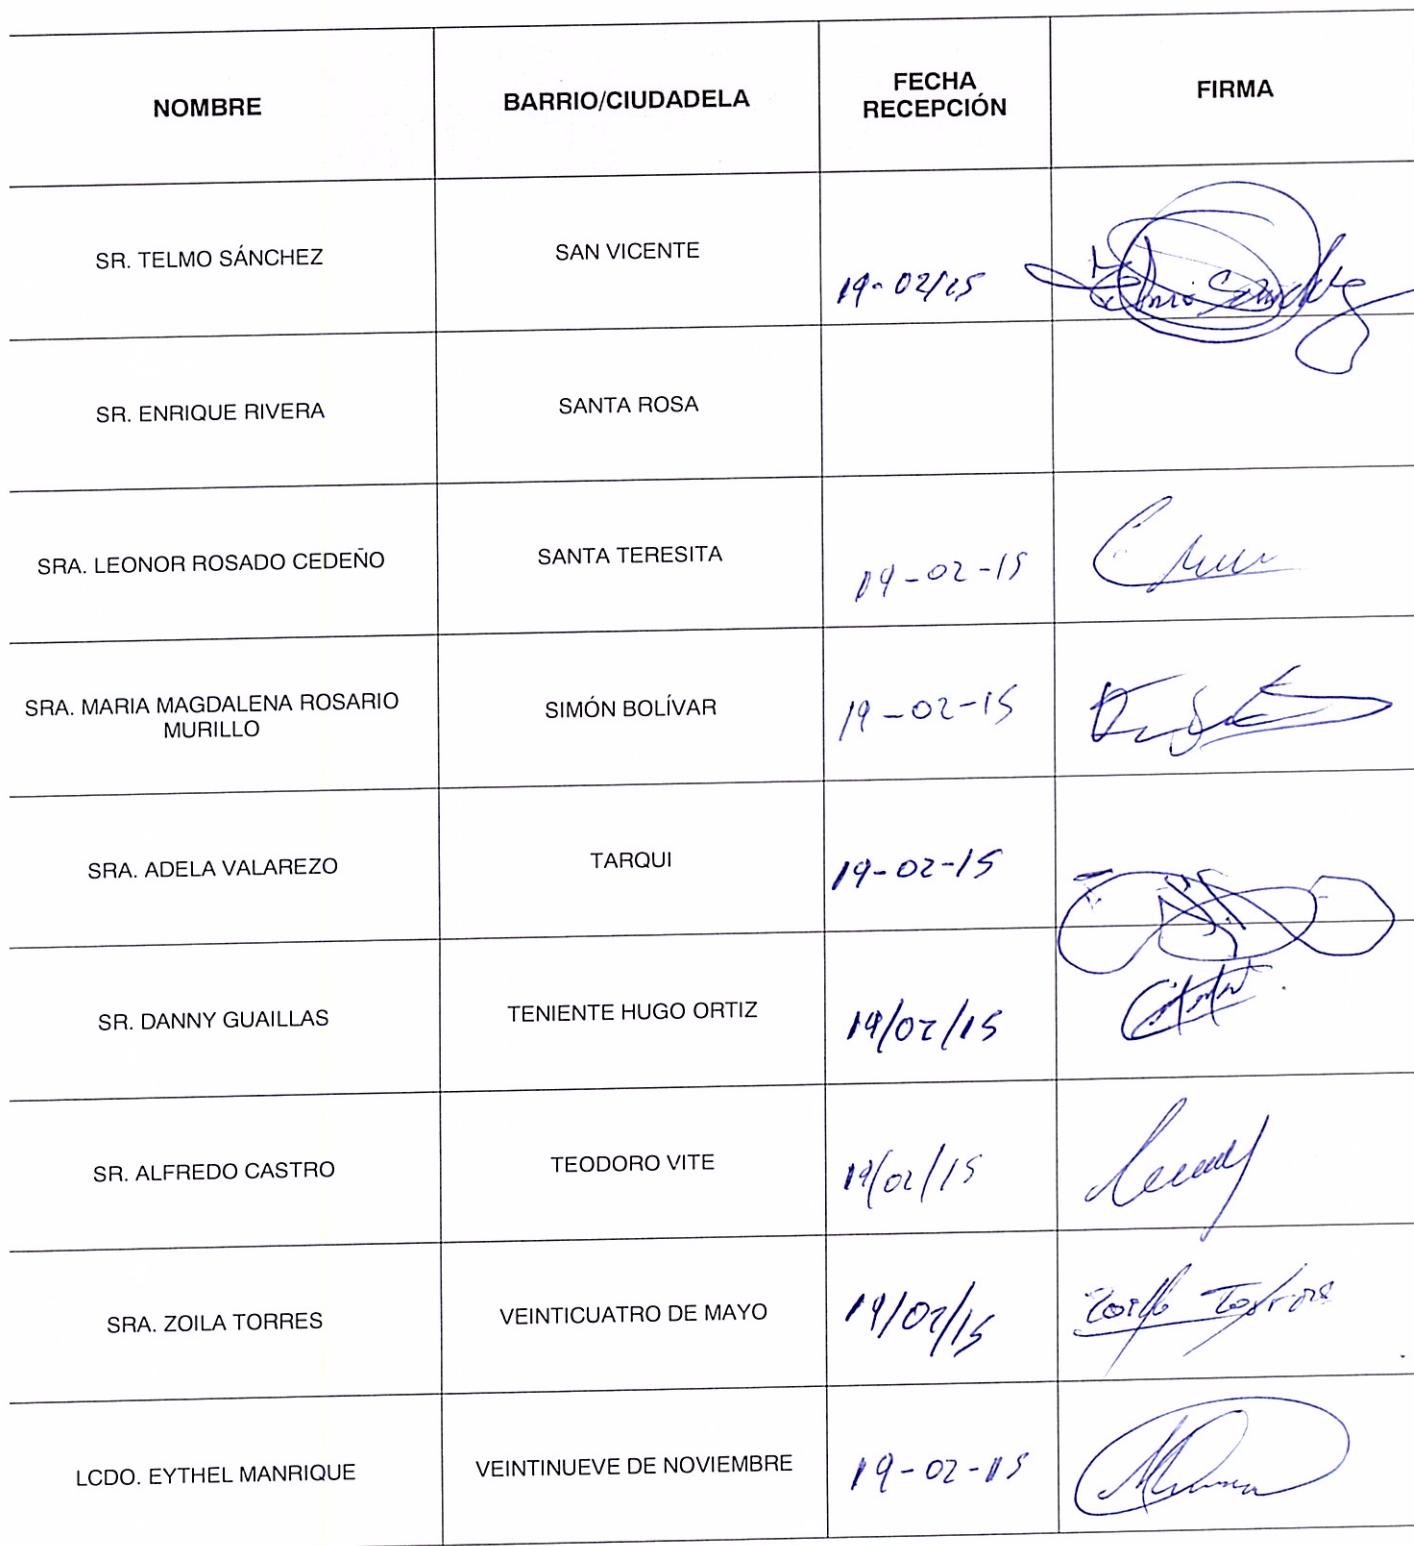 NOMBRE
BARRIO/CIUDADELA
FECHA
RECEPCIÓN
FIRMA
SR. TELMO SÁNCHEZ
SAN VICENTE
19-02/15
Telmo Sanchez
SR. ENRIQUE RIVERA
SANTA ROSA
SRA. LEONOR ROSADO CEDEÑO
SANTA TERESITA
19-02-15
SRA. MARIA MAGDALENA ROSARIO
MURILLO
SIMÓN BOLÍVAR
19-02-15
SRA. ADELA VALAREZO
TARQUI
19-02-15
SR. DANNY GUAILLAS
TENIENTE HUGO ORTIZ
19/02/15
SR. ALFREDO CASTRO
TEODORO VITE
19/02/15
SRA. ZOILA TORRES
VEINTICUATRO DE MAYO
19/02/15
Zoila Torres
LCDO. EYTHEL MANRIQUE
VEINTINUEVE DE NOVIEMBRE
19-02-15